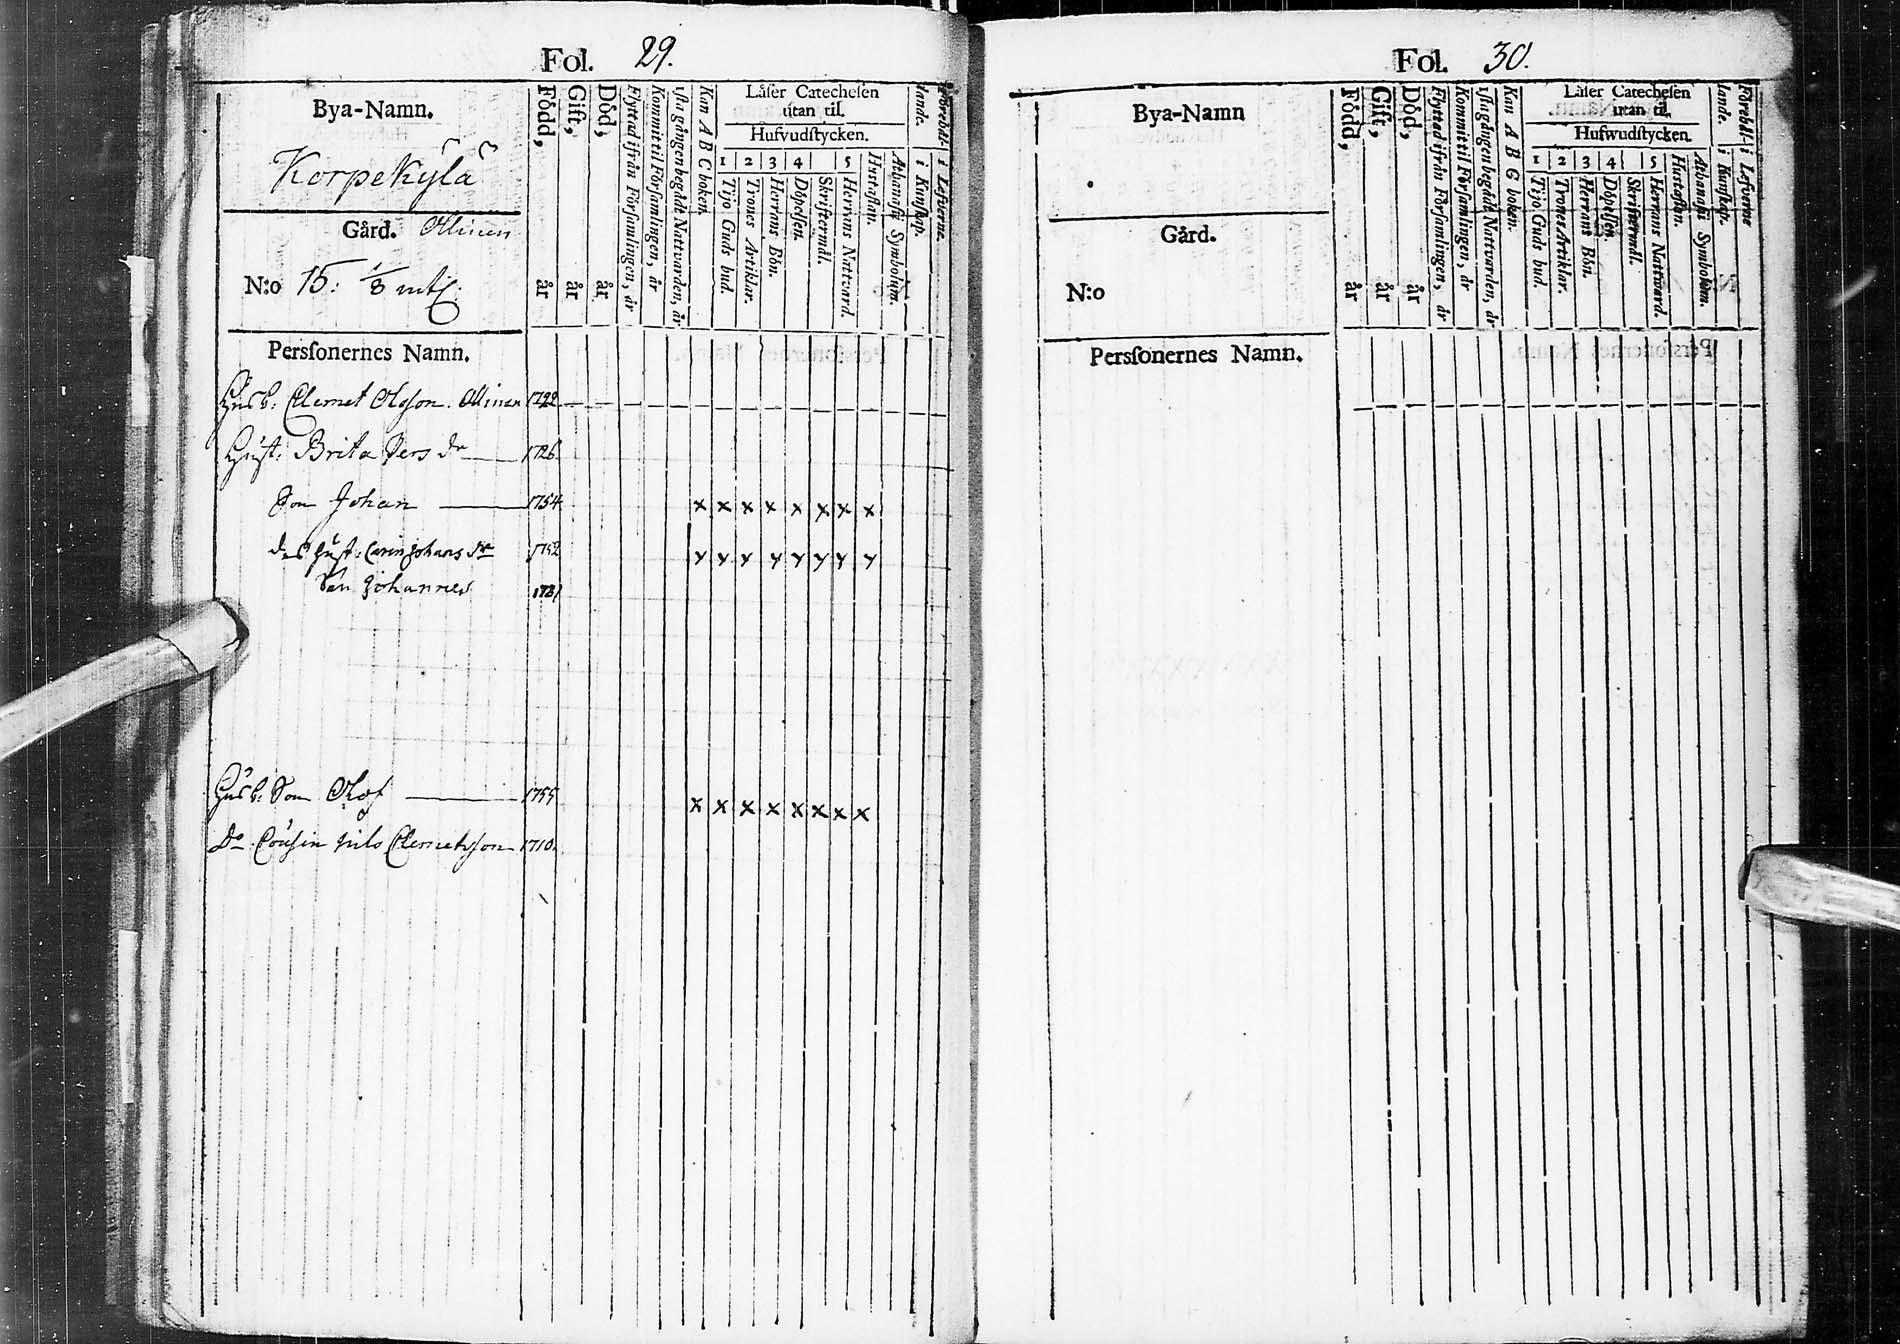 Fol. 29.
Bya-Namn.
Korpekylä
Gård. Ollinen
N:o 15. 1/8 mtl.
Född, år
Gift, år
Död, år
Flyttad ifrån Församlingen, år
Kommit til Församlingen, år
1sta gången begådt Nattvarden, år
Kan A B C boken.
Låser Catecheſen
utan til.
Hufvudſtycken.
1 2 3 4 5
Tijo Guds bud.
Trones Artiklar.
Herrans Bön.
Döpelſen.
Skriftermål.
Herrans Nattvard.
Hustaflan.
Athanaſii Symbolum.
i Kunſkap.
i Lefverne.
Perſonernes Namn.
Husb: Clemet Olofson. Ollinen 1722
Hust: Brita Pers dr 1726
Son Johan 1754 x x x x x x x x
des hust: Carin Johans dr 1752 x x x x x x x x
Son Johannes 1781
Husb: Son Olof 1755 x x x x x x x x
Do Cousin Nils Clemetsson 1710.
Fol. 30.
Bya-Namn
Gård.
N:o
Född, år
Gift, år
Död, år
Flyttad ifrån Församlingen, år
Kommit til Församlingen, år
1sta gången begådt Nattvarden, år
Kan A B C boken.
Låſer Catecheſen
utan til.
Hufwudſtycken.
1 2 3 4 5
Tijo Guds bud.
Trones Artiklar.
Herrans Bön.
Döpelſen.
Skriftermål.
Herrans Nattward.
Hustaflan.
Athanaſii Symbolum.
i Kunſkap.
i Lefverne
Perſonernes Namn.